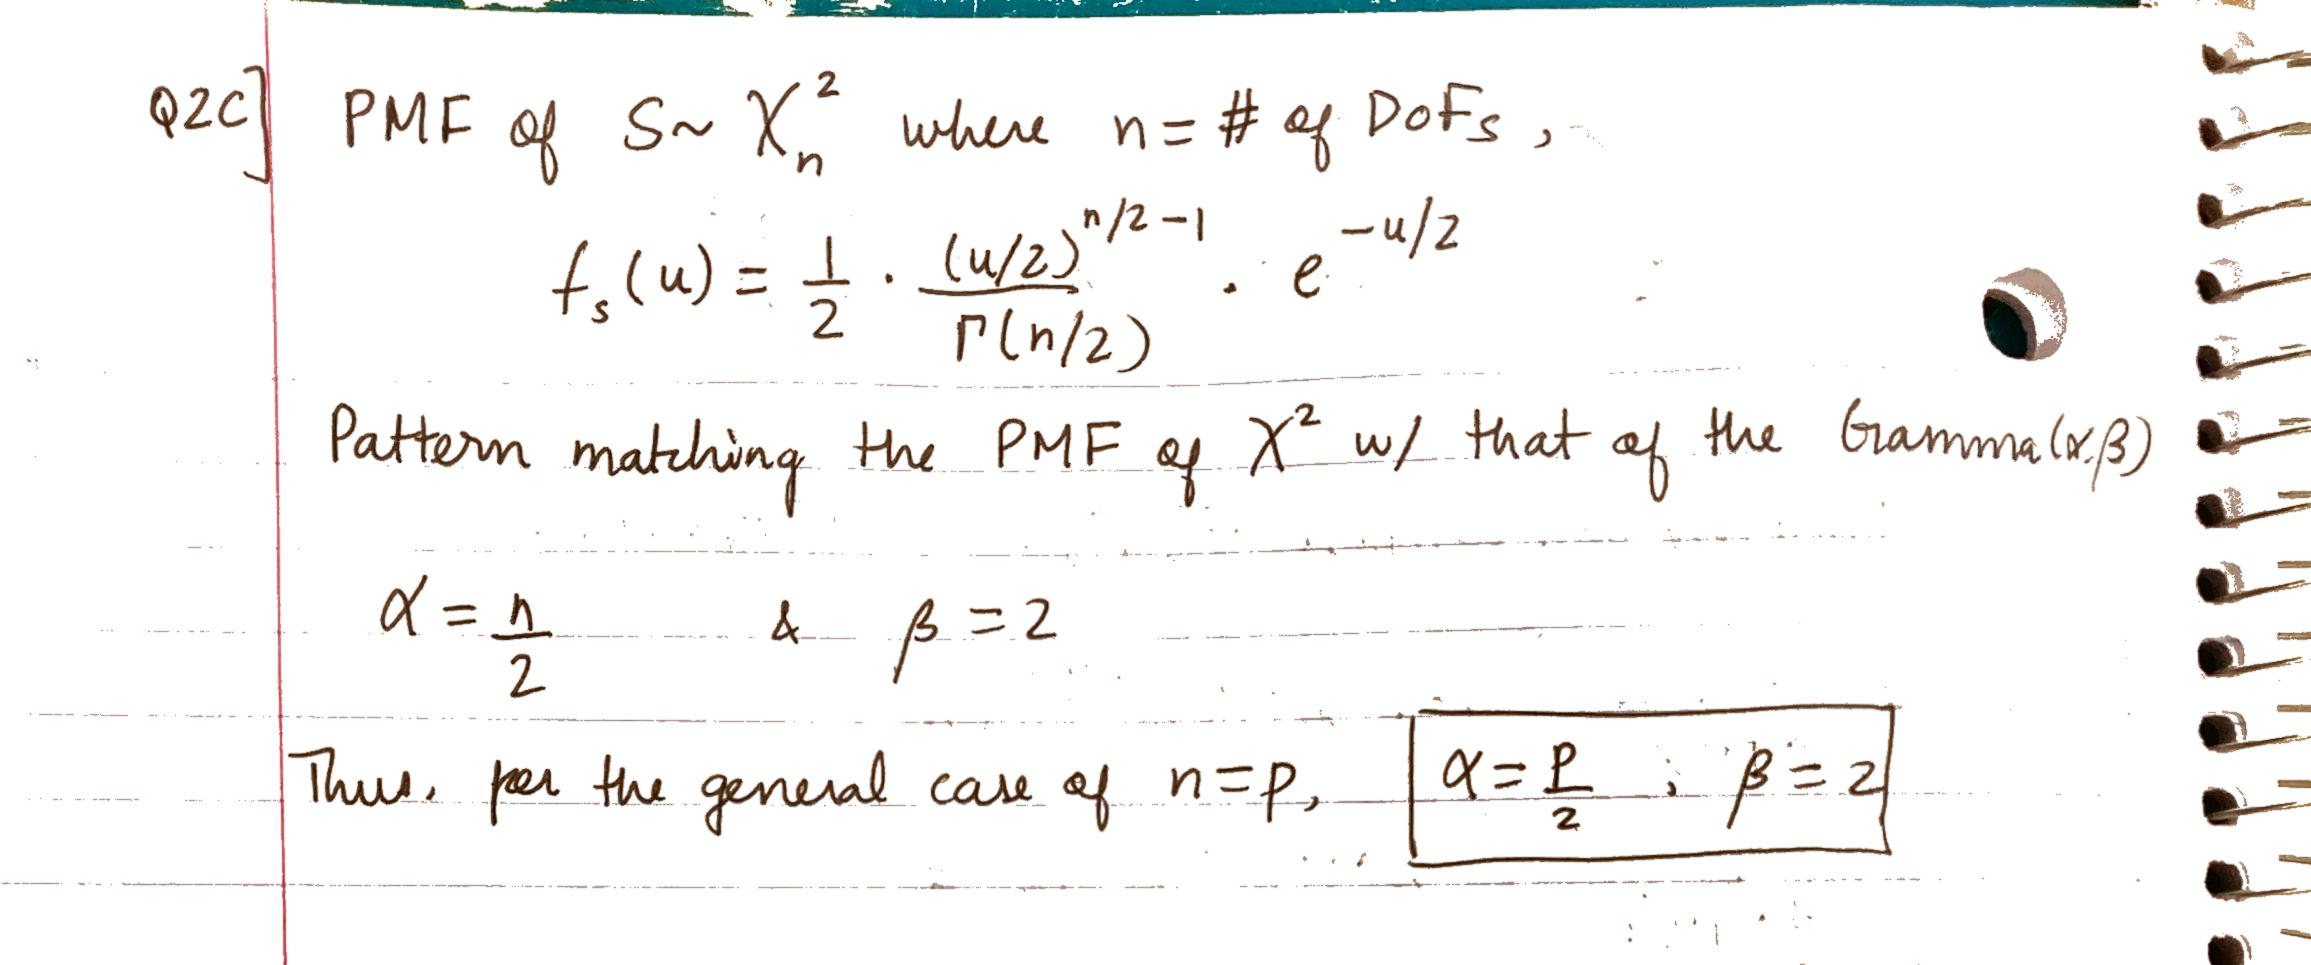 Q2C] PMF of S~ χ²ₙ where n = # of DoFs,
fₛ(u) = 1/2 · (u/2)^(n/2 -1) / Γ(n/2) · e^(-u/2)
Pattern matching the PMF of χ² w/ that of the Gamma(α,β)
α = n/2 & β = 2
Thus, for the general case of n=p, α = p/2 ; β = 2